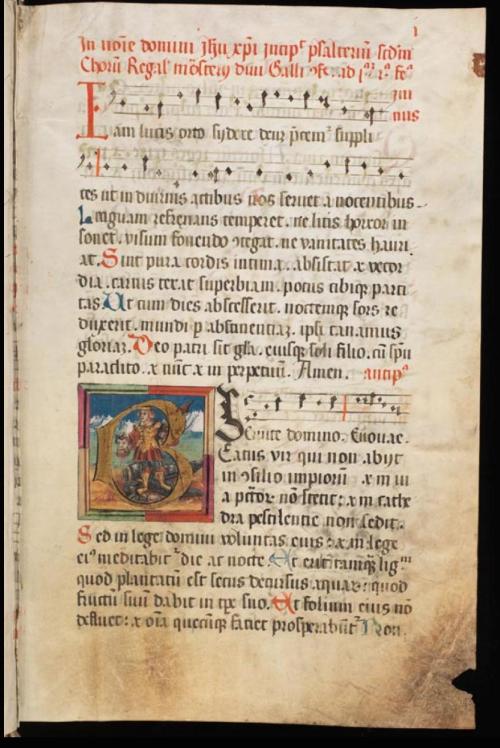 In no͂ie domini Jhu xp̄i incipᵗ psalteriu͂ scd͂m
Choru͂ Regal' mo͂stery divi Galli
Iam lucis orto sydere deu͂ p̄cem² suppli
ces ut in diurnis actibus nos servet a nocentibus.
Linguam refrenans temperet. ne litis horror in
sonet. visum fovendo ꝯtegat. ne vanitates hauri
at. Sint pura cordis intima. absistat x vecor
dia. carnis terat superbiam. potus cibiqꝫ parci
tas. Ut cum dies abscesserit. noctemqꝫ sors re
duxerit. mundi p abstinentiaꝫ. ipsi canamus
gloriaꝫ. Deo patri sit gl͂a. eiusqꝫ soli filio. cu͂ sp͂u
paraclito. x nu͂c x in perpetuu͂. Amen. antipᵃ
Servite domino. Euouae.
Beatus vir qui non abijt
in ꝯsilio impioru͂ x in via
a p͂ctoꝝ no͂ stetit: x in cathe
dra pestilentie non sedit.
Sed in lege domini voluntas eius: x in lege
eiꝰ meditabit² die ac nocte. Et erit tamqꝫ ligᵐ
quod plantatu͂ est secus decursus aquaꝝ: quod
fructu͂ suu͂ dabit in tp͂e suo. Et foliu͂m eius no͂
defluet: x o͂ia quecu͂qꝫ faciet prosperabu͂t² Non